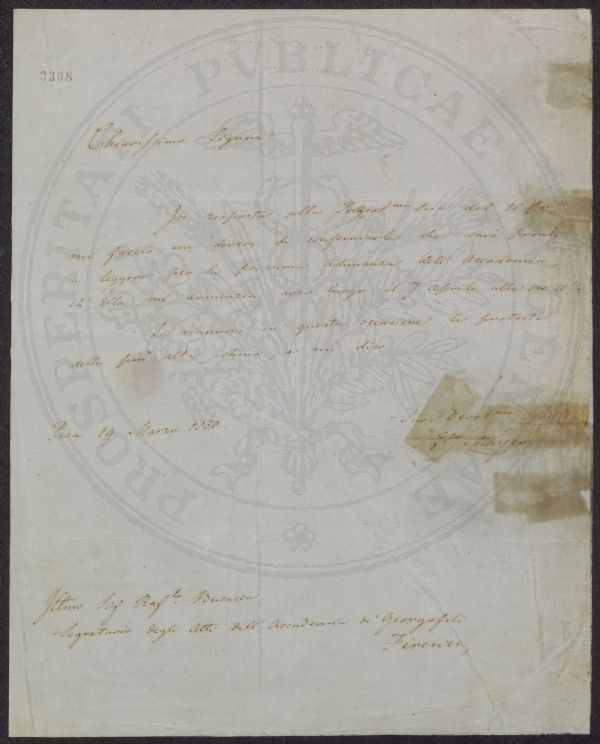 2308
PROSPERITATI PVBLICAE
Chiarissimo Signore
In risposta alla Pregiat.ma Sua del 16
mi faccio un dovere di confermarle che sarò pronto
a leggere per la prossima adunanza dell'Accademia
ch'Ella mi annunzia aver luogo il 7 aprile alle ore
Le rinnuovo in questa occasione le proteste
della più alta stima, e mi dico
Pisa 19 Marzo 1850
Suo Devot.mo
Illmo Sig.r Raf.lo Busacca
Segretario degli Atti dell'Accademia de' Georgofili
Firenze